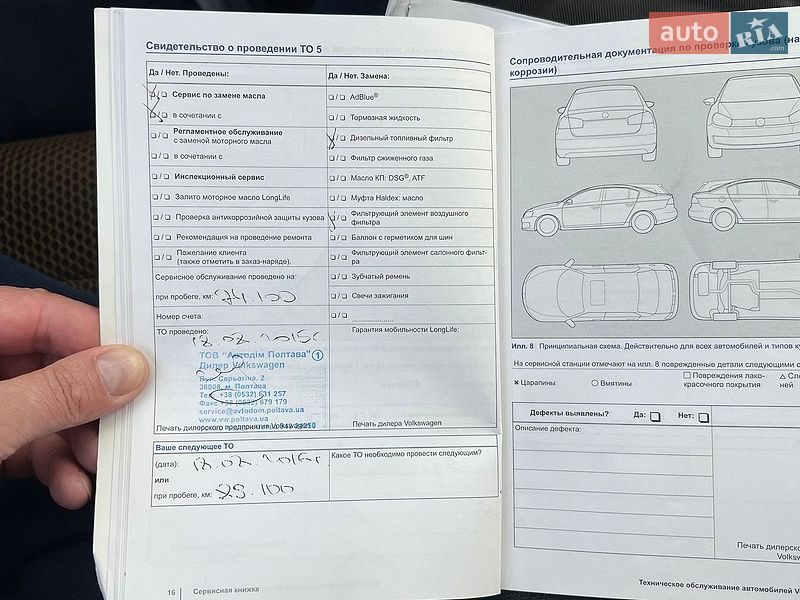 auto RIA .com
Свидетельство о проведении ТО 5
Да / Нет. Проведены:
Да / Нет. Замена:
❏ / ❏ Сервис по замене масла
❏ / ❏ AdBlue®
❏ / ❏ в сочетании с
❏ / ❏ Тормозная жидкость
❏ / ❏ Регламентное обслуживание
с заменой моторного масла
❏ / ❏ Дизельный топливный фильтр
❏ / ❏ в сочетании с
❏ / ❏ Фильтр сжиженного газа
❏ / ❏ Инспекционный сервис
❏ / ❏ Масло КП: DSG®, ATF
❏ / ❏ Залито моторное масло LongLife
❏ / ❏ Муфта Haldex: масло
❏ / ❏ Проверка антикоррозийной защиты кузова
❏ / ❏ Фильтрующий элемент воздушного
фильтра
❏ / ❏ Рекомендация на проведение ремонта
❏ / ❏ Баллон с герметиком для шин
❏ / ❏ Пожелание клиента
(также отметить в заказ-наряде).
❏ / ❏ Фильтрующий элемент салонного фильт-
ра
Сервисное обслуживание проведено на:
❏ / ❏ Зубчатый ремень
при пробеге, км: 74.100
❏ / ❏ Свечи зажигания
Номер счета:
❏ / ❏
ТО проведено:
Гарантия мобильности LongLife:
ТОВ "Автодім Полтава" 1
Дилер Volkswagen
Вул. Серьогіна, 2
36008, м. Полтава
Тел. +38 (0532) 631 257
Факс +38 (0532) 679 179
service@avtodom.poltava.ua
www.vw.poltava.ua
Печать дилерского предприятия Volkswagen
Печать дилера Volkswagen
Ваше следующее ТО
(дата):
Какое ТО необходимо провести следующим?
или
при пробеге, км:
16 Сервисная книжка
Сопроводительная документация по проверке кузова (на
коррозии)
Илл. 8 Принципиальная схема. Действительно для всех автомобилей и типов к
На сервисной станции отмечают на илл. 8 поврежденные детали следующими с
× Царапины
○ Вмятины
□ Повреждения лако-
красочного покрытия
△ Сле
ней
Дефекты выявлены?
Да: ❏
Нет: ❏
Описание дефекта:
Печать дилерско
Volksw
Техническое обслуживание автомобилей V